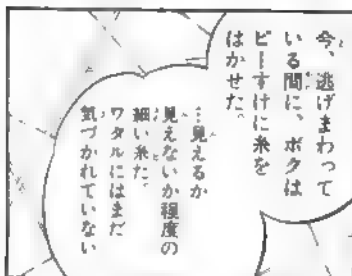 今、逃げまわって
いる間に、ボクは
ビーすけに糸を
はかせた。
…見えるか
見えないか程度の
細い糸だ。
ワタルにはまだ
気づかれていない